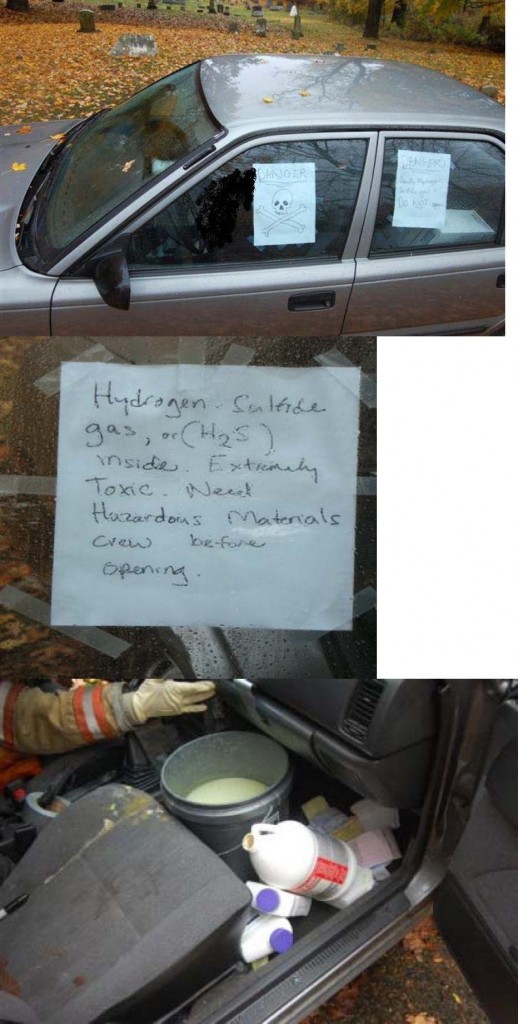 DANGER
DANGER!
Do Not
Hydrogen Sulfide
gas, or (H2S)
inside. Extremely
Toxic. Need
Hazardous Materials
crew before
opening.